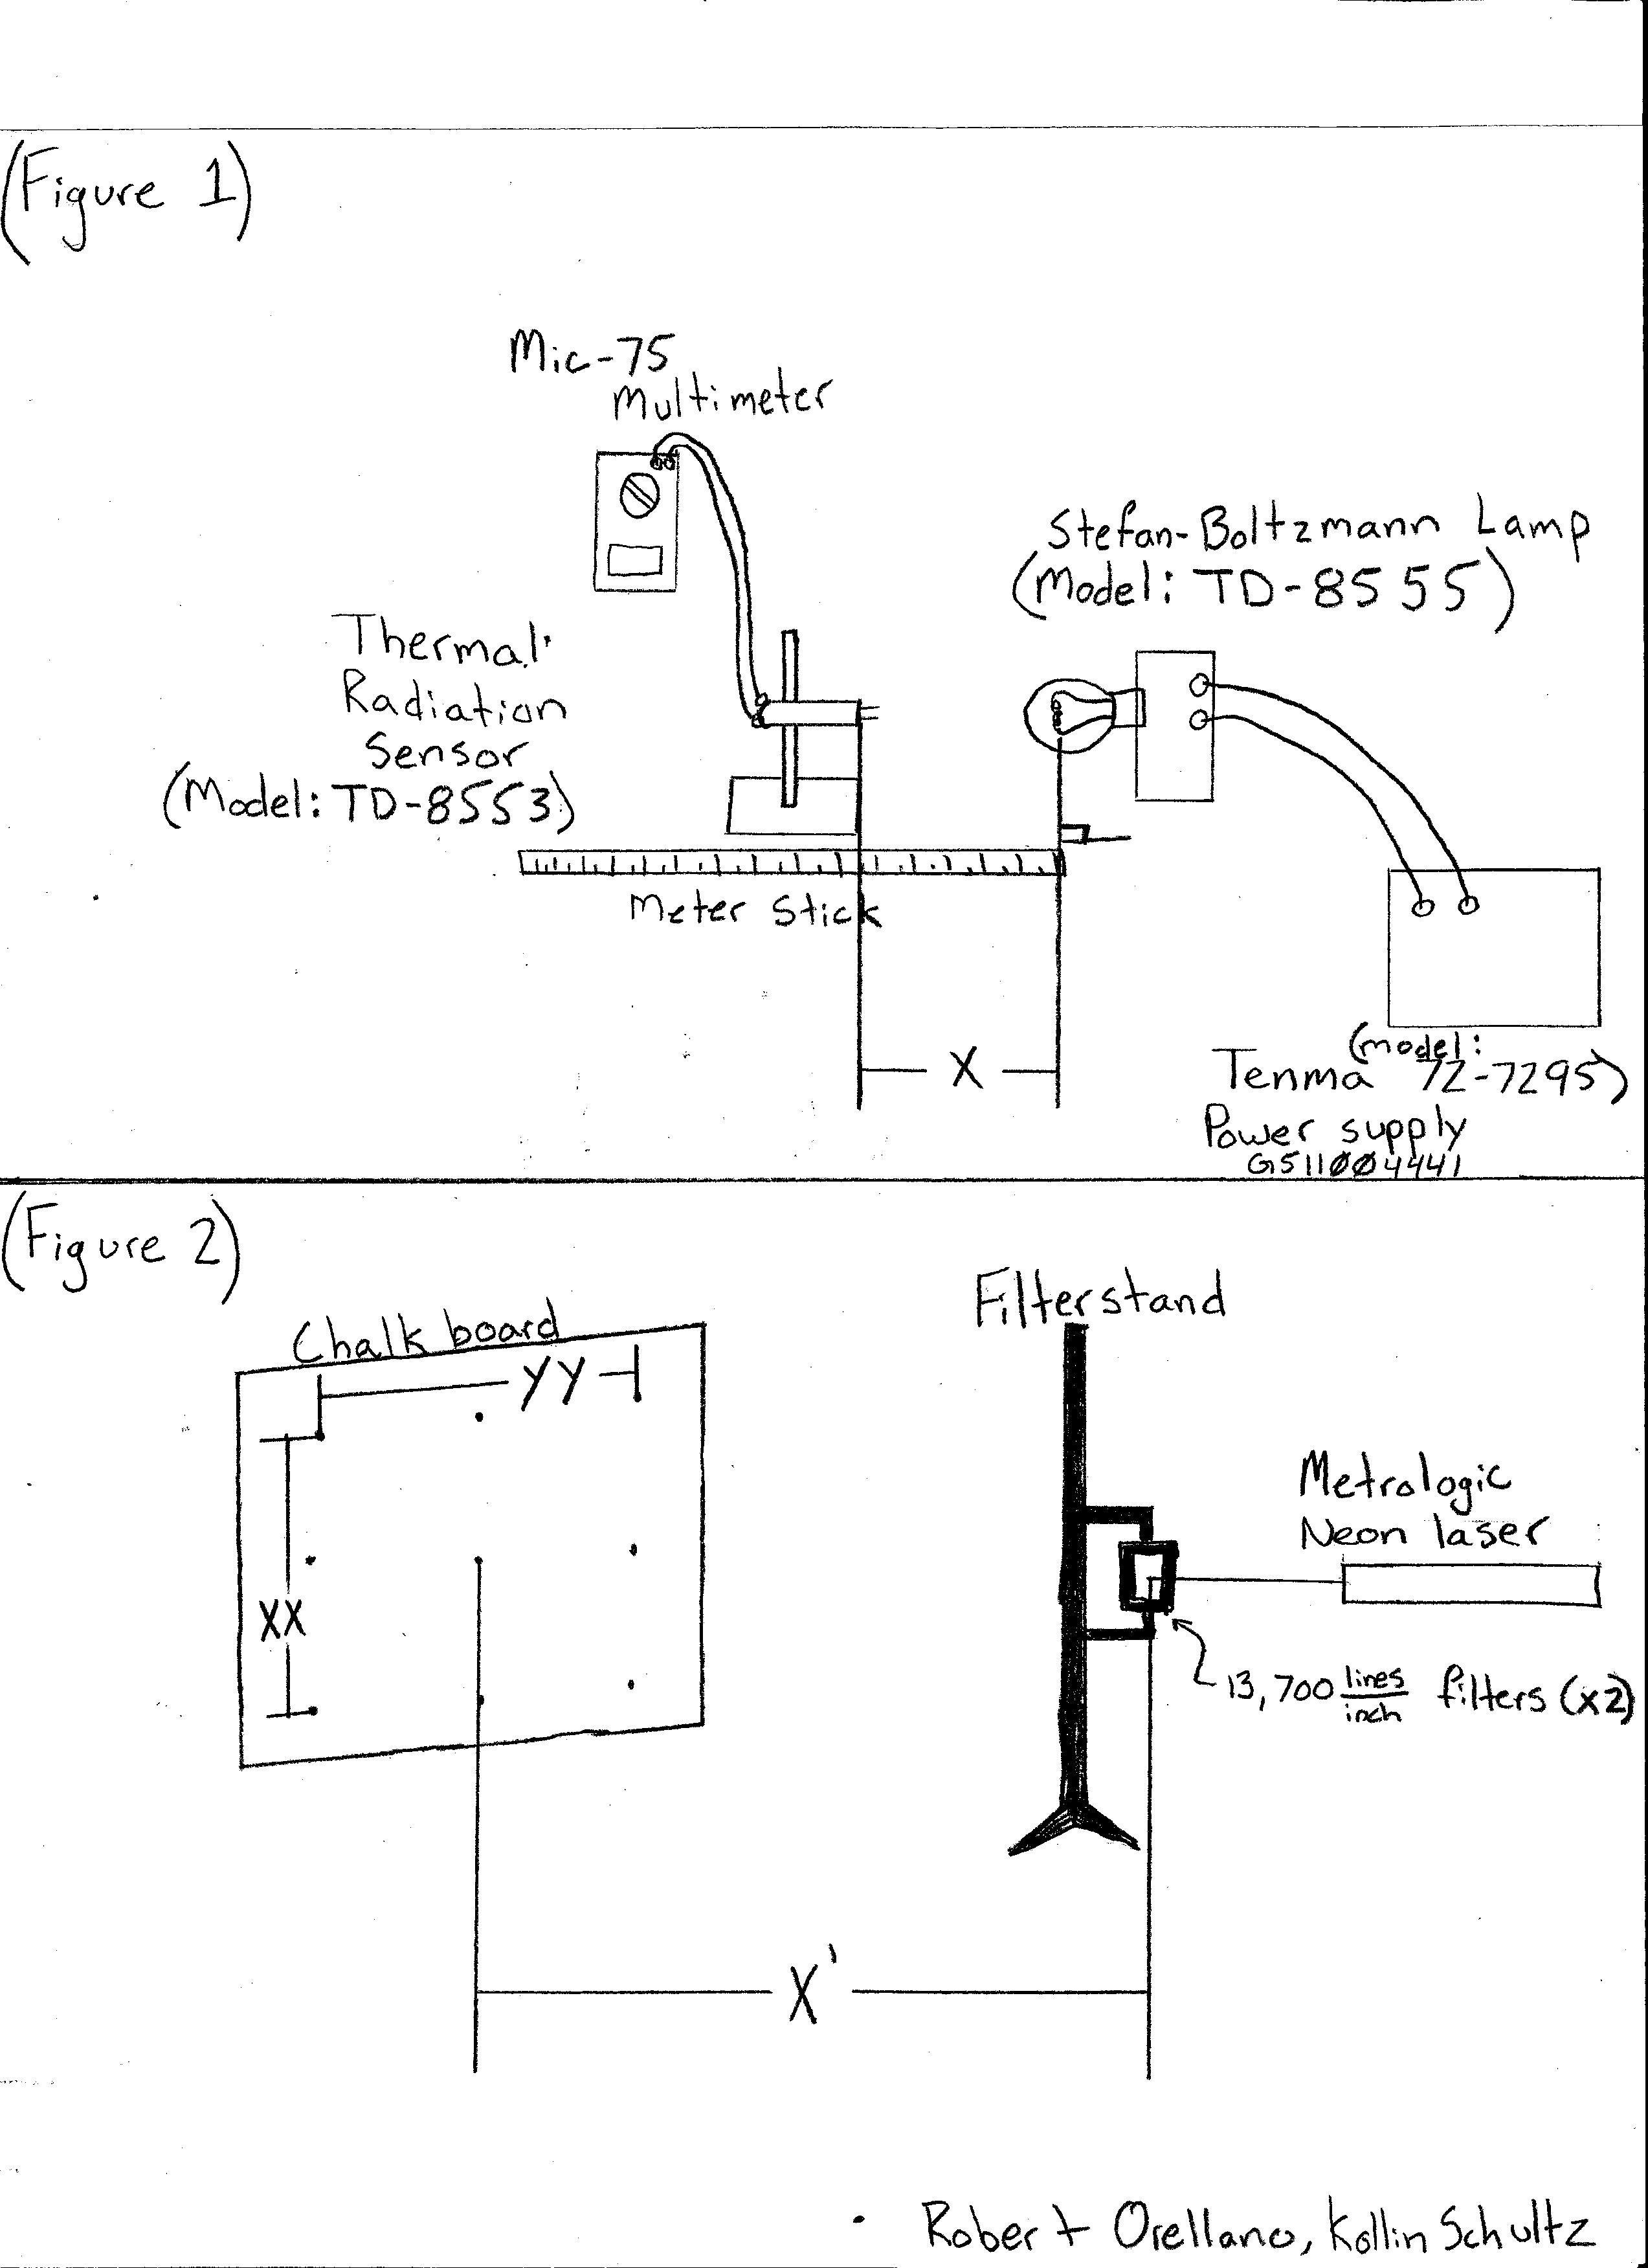 (Figure 1)
Mic-75
Multimeter
Stefan-Boltzmann Lamp
(Model: TD-8555)
Thermal
Radiation
Sensor
(Model: TD-8553)
Meter Stick
X
(model:
Tenma 72-7295)
Power supply
G511004441
(Figure 2)
Filterstand
Chalk board
YY
Metrologic
Neon laser
XX
13,700 lines/inch filters (x2)
X'
Robert Orellano, Kollin Schultz